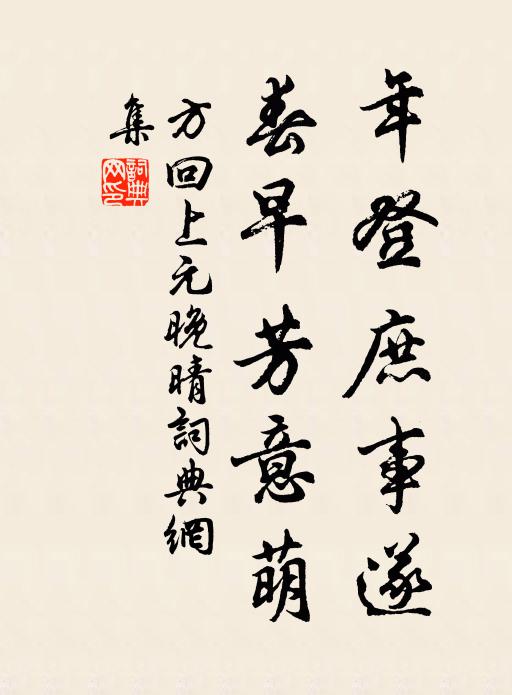 年登庶事遂
春早芳意萌
方回上元晚晴詞典網
集
詞典網印